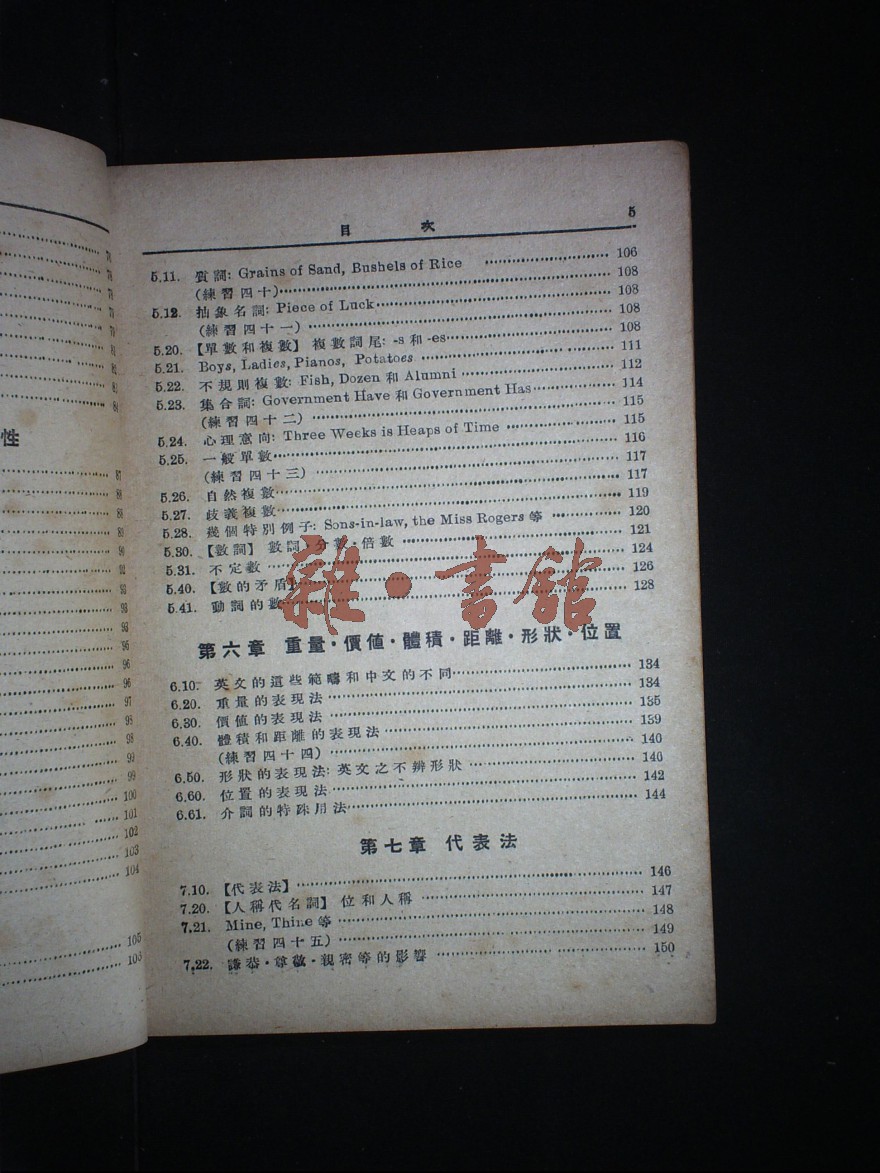 81
82
83
84
性
87
88
88
89
90
92
93
93
95
96
96
97
98
98
99
99
100
101
102
103
104
105
目 次 5
5.11. 質詞: Grains of Sand, Bushels of Rice 106
(練習四十) 108
5.12. 抽象名詞: Piece of Luck 108
(練習四十一) 108
5.20. 【單數和複數】 複數詞尾: -s 和 -es 108
5.21. Boys, Ladies, Pianos, Potatoes 111
5.22. 不規則複數: Fish, Dozen 和 Alumni 112
5.23. 集合詞: Government Have 和 Government Has 114
(練習四十二) 115
5.24. 心理意向: Three Weeks is Heaps of Time 115
5.25. 一般單數 116
(練習四十三) 117
5.26. 自然複數 117
5.27. 歧義複數 119
5.28. 幾個特別例子: Sons-in-law, the Miss Rogers 等 120
5.30. 【數詞】 數詞·分數·倍數 121
5.31. 不定數 124
5.40. 【數的矛盾】 126
5.41. 動詞的數 128
雜·書館
第六章 重量·價值·體積·距離·形狀·位置
6.10. 英文的這些範疇和中文的不同 134
6.20. 重量的表現法 134
6.30. 價值的表現法 135
6.40. 體積和距離的表現法 139
(練習四十四) 140
6.50. 形狀的表現法: 英文之不辨形狀 140
6.60. 位置的表現法 142
6.61. 介詞的特殊用法 144
第七章 代表法
7.10. 【代表法】 146
7.20. 【人稱代名詞】 位和人稱 147
7.21. Mine, Thine 等 148
(練習四十五) 149
7.22. 謙恭·尊敬·親密等的影響 150